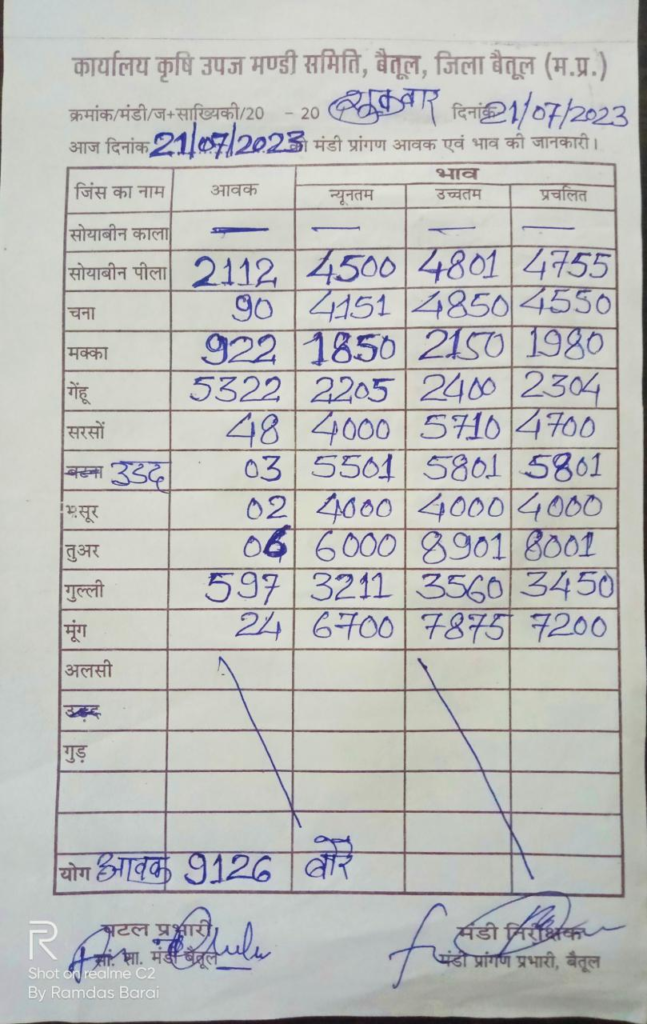 कार्यालय कृषि उपज मण्डी समिति, बैतूल, जिला बैतूल (म.प्र.)
क्रमांक/मंडी/ज+साख्यिकी/20 - 20 शुक्रवार दिनांक 21/07/2023
आज दिनांक 21/07/2023 को मंडी प्रांगण आवक एवं भाव की जानकारी।
जिंस का नाम आवक भाव
न्यूनतम उच्चतम प्रचलित
सोयाबीन काला — — — —
सोयाबीन पीला 2112 4500 4801 4755
चना 90 4151 4850 4550
मक्का 922 1850 2150 1980
गेंहू 5322 2205 2400 2304
सरसों 48 4000 5710 4700
उडद 03 5501 5801 5801
मसूर 02 4000 4000 4000
तुअर 06 6000 8901 8001
गुल्ली 597 3211 3560 3450
मूंग 24 6700 7875 7200
अलसी
गुड़
योग आवक 9126 बोरे
पटल प्रभारी मंडी निरीक्षक
सां. सा. मंडी बैतूल मंडी प्रांगण प्रभारी, बैतूल
R
Shot on realme C2
By Ramdas Barai